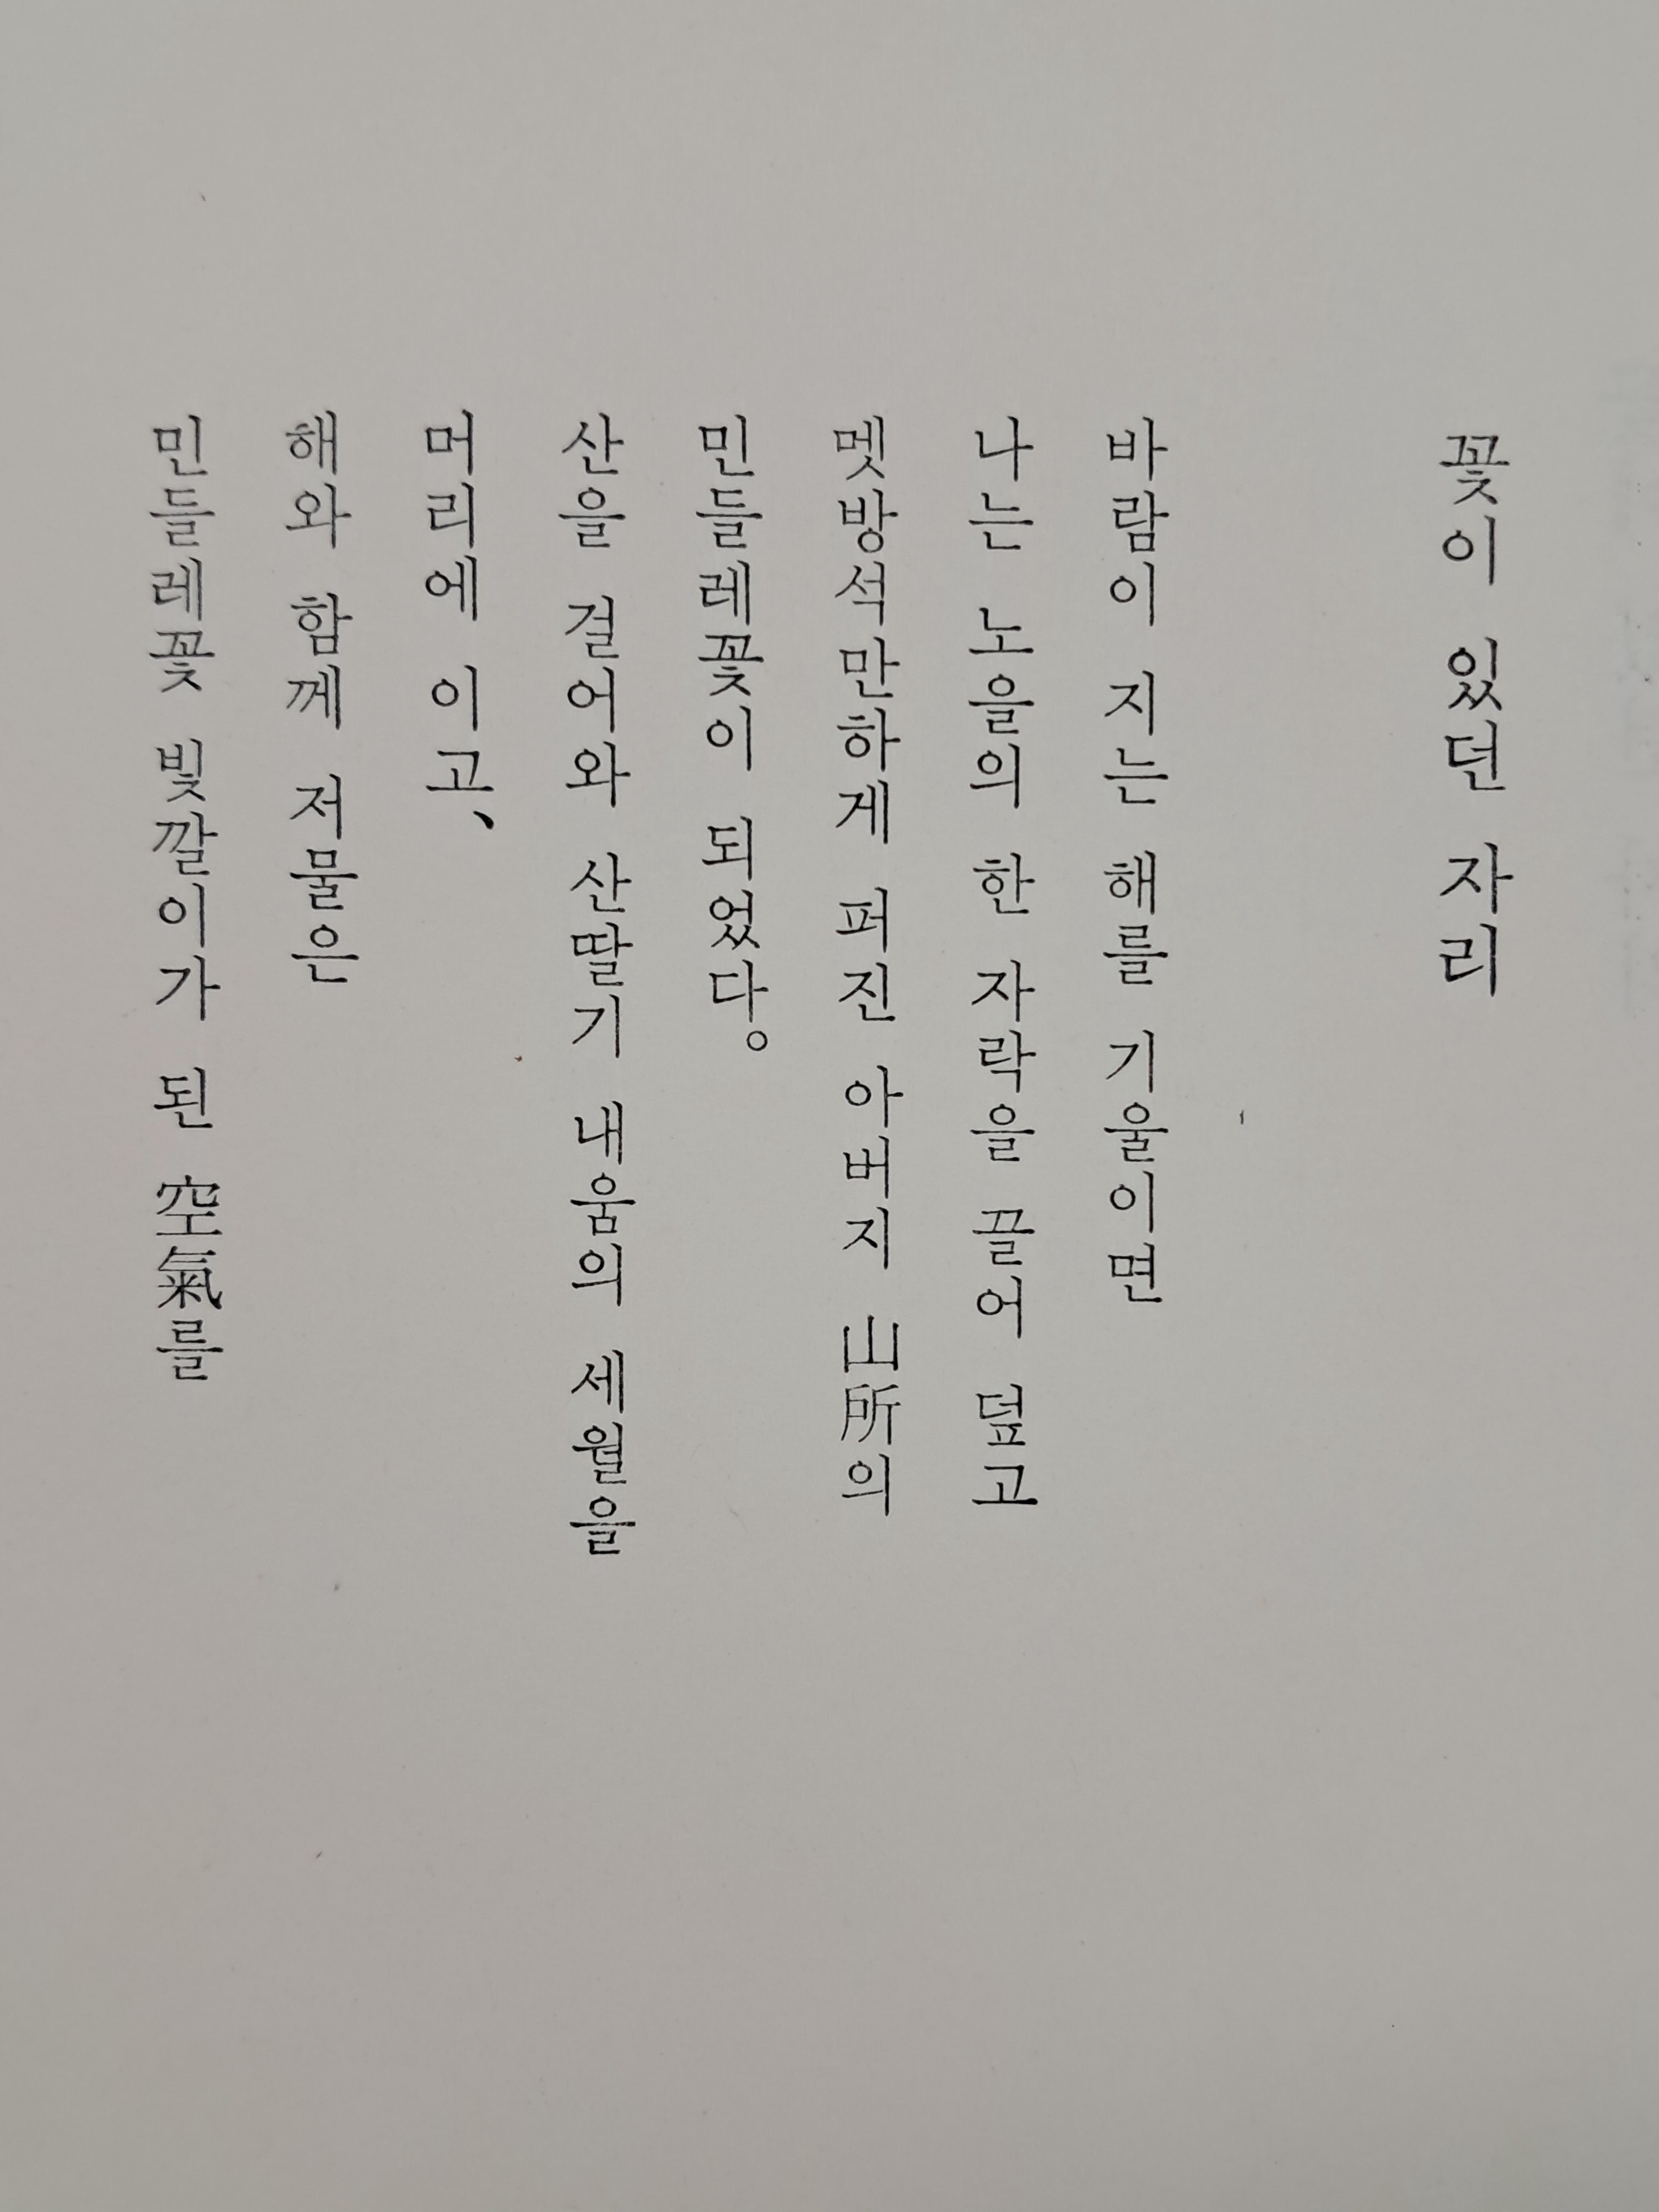 꽃이 있던 자리
바람이 지는 해를 기울이면
나는 노을의 한 자락을 끌어 덮고
멧방석만하게 퍼진 아버지 山所의
민들레꽃이 되었다。
산을 걸어와 산딸기 내움의 세월을
머리에 이고、
해와 함께 저물은
민들레꽃 빛깔이가 된 空氣를